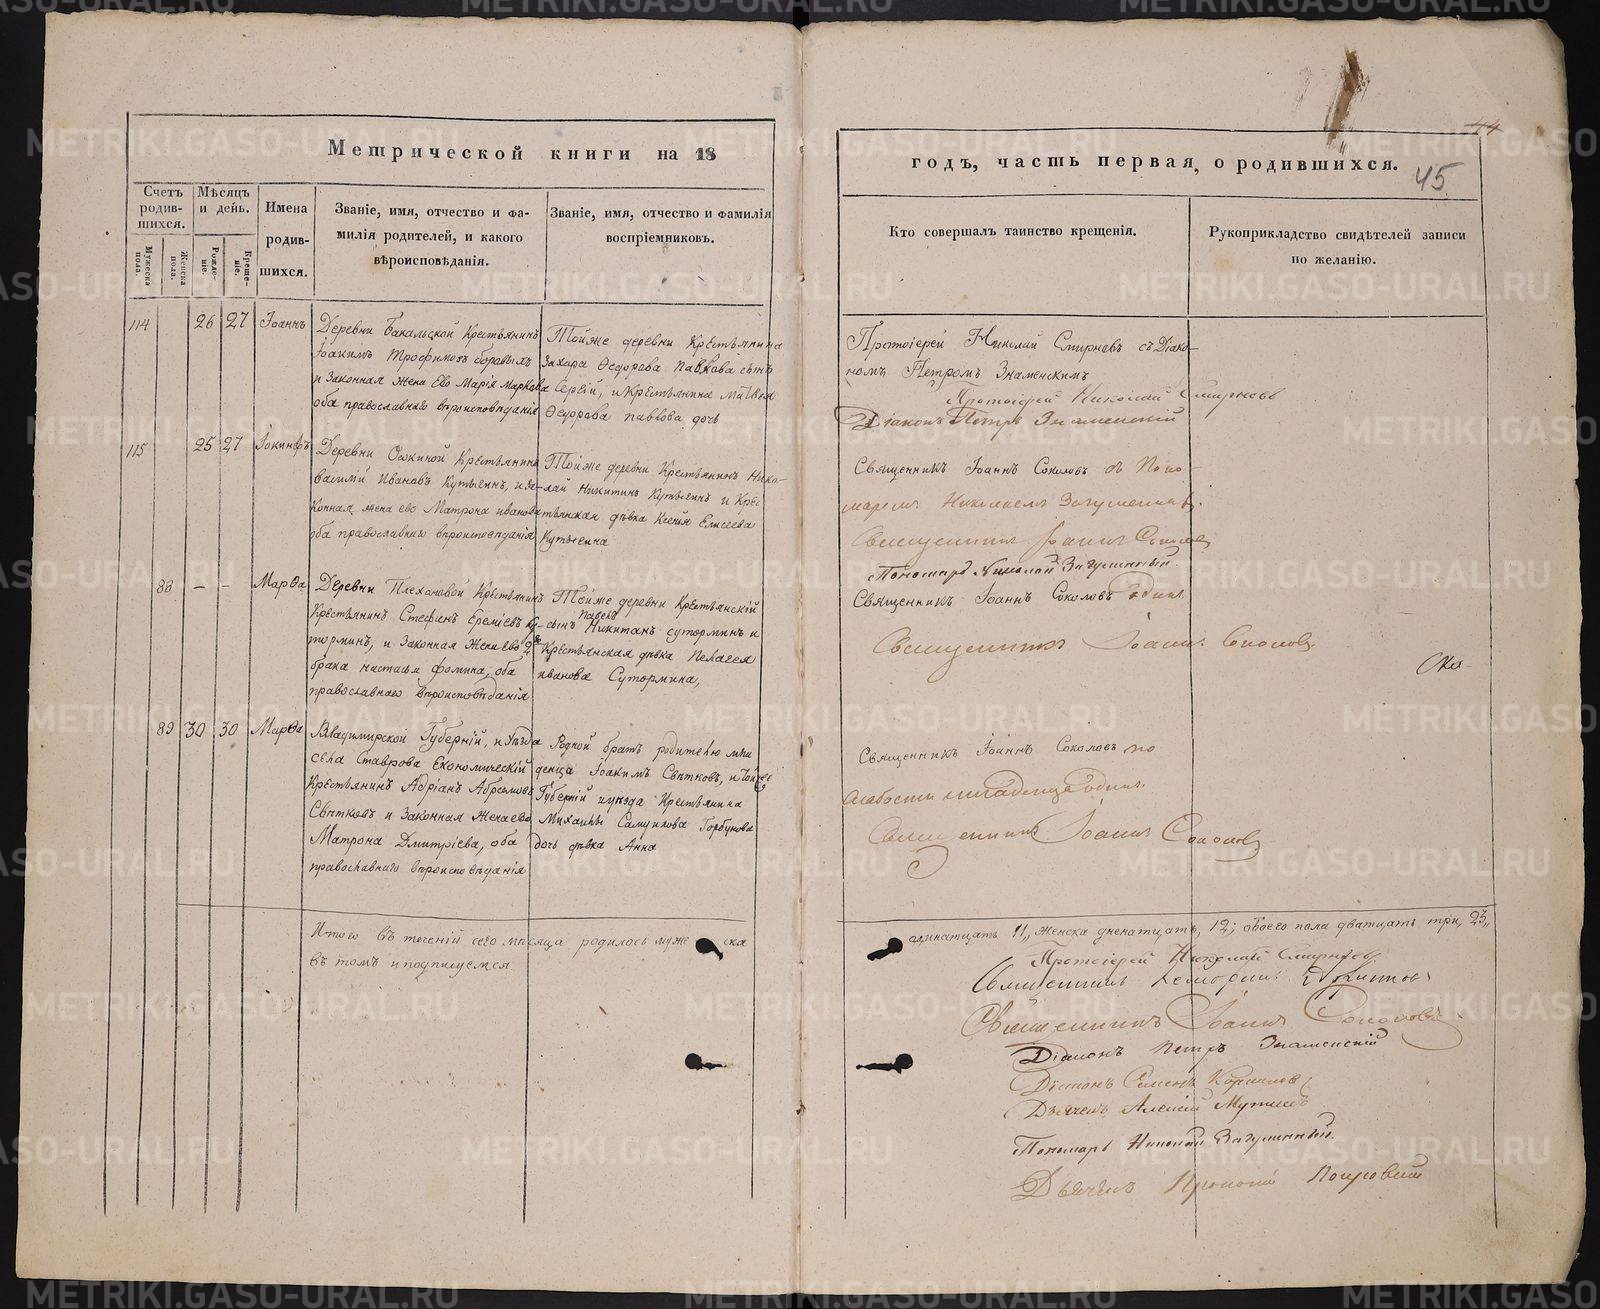 44
Метрической книги на 18
годъ, часть первая, о родившихся.
45
Счетъ родив-шихся.
Мужеска пола.
Женска пола.
Мѣсяцъ и день.
Рожде-ніе.
Креще-ніе.
Имена
родив-
шихся.
Званіе, имя, отчество и фа-
милія родителей, и какого
вѣроисповѣданія.
Званіе, имя, отчество и фамилія
воспріемниковъ.
Кто совершалъ таинство крещенія.
Рукоприкладство свидѣтелей записи
по желанію.
114 26 27 Іоаннъ
Деревни Бакальской Крестьянинъ
Іоакимъ Трофимовъ боровыхъ
и Законная жена Ево Марія Маркова
оба православнаго вѣроисповѣданія
Тойже деревни Крестьянина
Захара Ѳедорова Павкова сынъ
Сергій, и Крестьянина Матвѣя
Ѳедорова павкова дочь
Протоіерей Николай Смирновъ съ Діако-
номъ Петромъ Знаменскимъ
Протоіерей Николай Смирновъ
Діаконъ Петръ Знаменскій
115 25 27 Іокинфъ
Деревни Крестьянинъ
василій Ивановъ Кутыгинъ, и За-
конная жена ево Матрона иванова
оба православнаго вѣроисповѣданія
Тойже деревни Крестьянинъ Нико-
лай Никитинъ Кутыгинъ и Крес
тьянская дѣвка Ксенія Елисеева
Кутыгина
Священникъ Іоаннъ Соколовъ съ Поно-
маремъ Николаемъ
Священникъ Іоаннъ Соколовъ
Пономарь Николай
88 – – Марѳа
Деревни Плехановой Крестьянинъ
Крестьянинъ Стефанъ Еремѣевъ Су-
торминъ, и Законная Жена ево 2го
брака фомина, оба
православнаго вѣроисповѣданія
Тойже деревни Крестьянскій
сынъ Павелъ Никитинъ суторминъ и
Крестьянская дѣвка Пелагея
иванова Сутормина,
Священникъ Іоаннъ Соколовъ одинъ.
Священникъ Іоаннъ Соколовъ
Ско-
89 30 30 Марѳа
Владимирской Губерніи, и уѣзда
села Ставрова Економическій
Крестьянинъ Адріанъ Абрамовъ
Свѣтковъ и Законная Жена ево
Матрона Дмитріева, оба
православнаго вѣроисповѣданія
Родной братъ родителю мла
денца Іоакимъ Свѣтковъ, и
Губерніи иуѣзда Крестьянина
Михаилы Самуилова Горбунова
дочь дѣвка Анна
Священникъ Іоаннъ Соколовъ по
слабости младенца одинъ.
Священникъ Іоаннъ Соколовъ
Итого въ теченіи сего мѣсяца родилось муже ска
въ томъ и подпишемся
одинатцать 11, женска двенатцать, 12; обоего пола дватцать три, 23,
Протоіерей Николай Смирновъ
Священникъ
Священникъ Іоаннъ Соколовъ
Діаконъ Петръ Знаменскій
Діаконъ Семенъ
Дьячекъ Алексій
Пономарь Николай
Дьячекъ Покровскій
METRIKI.GASO-URAL.RU